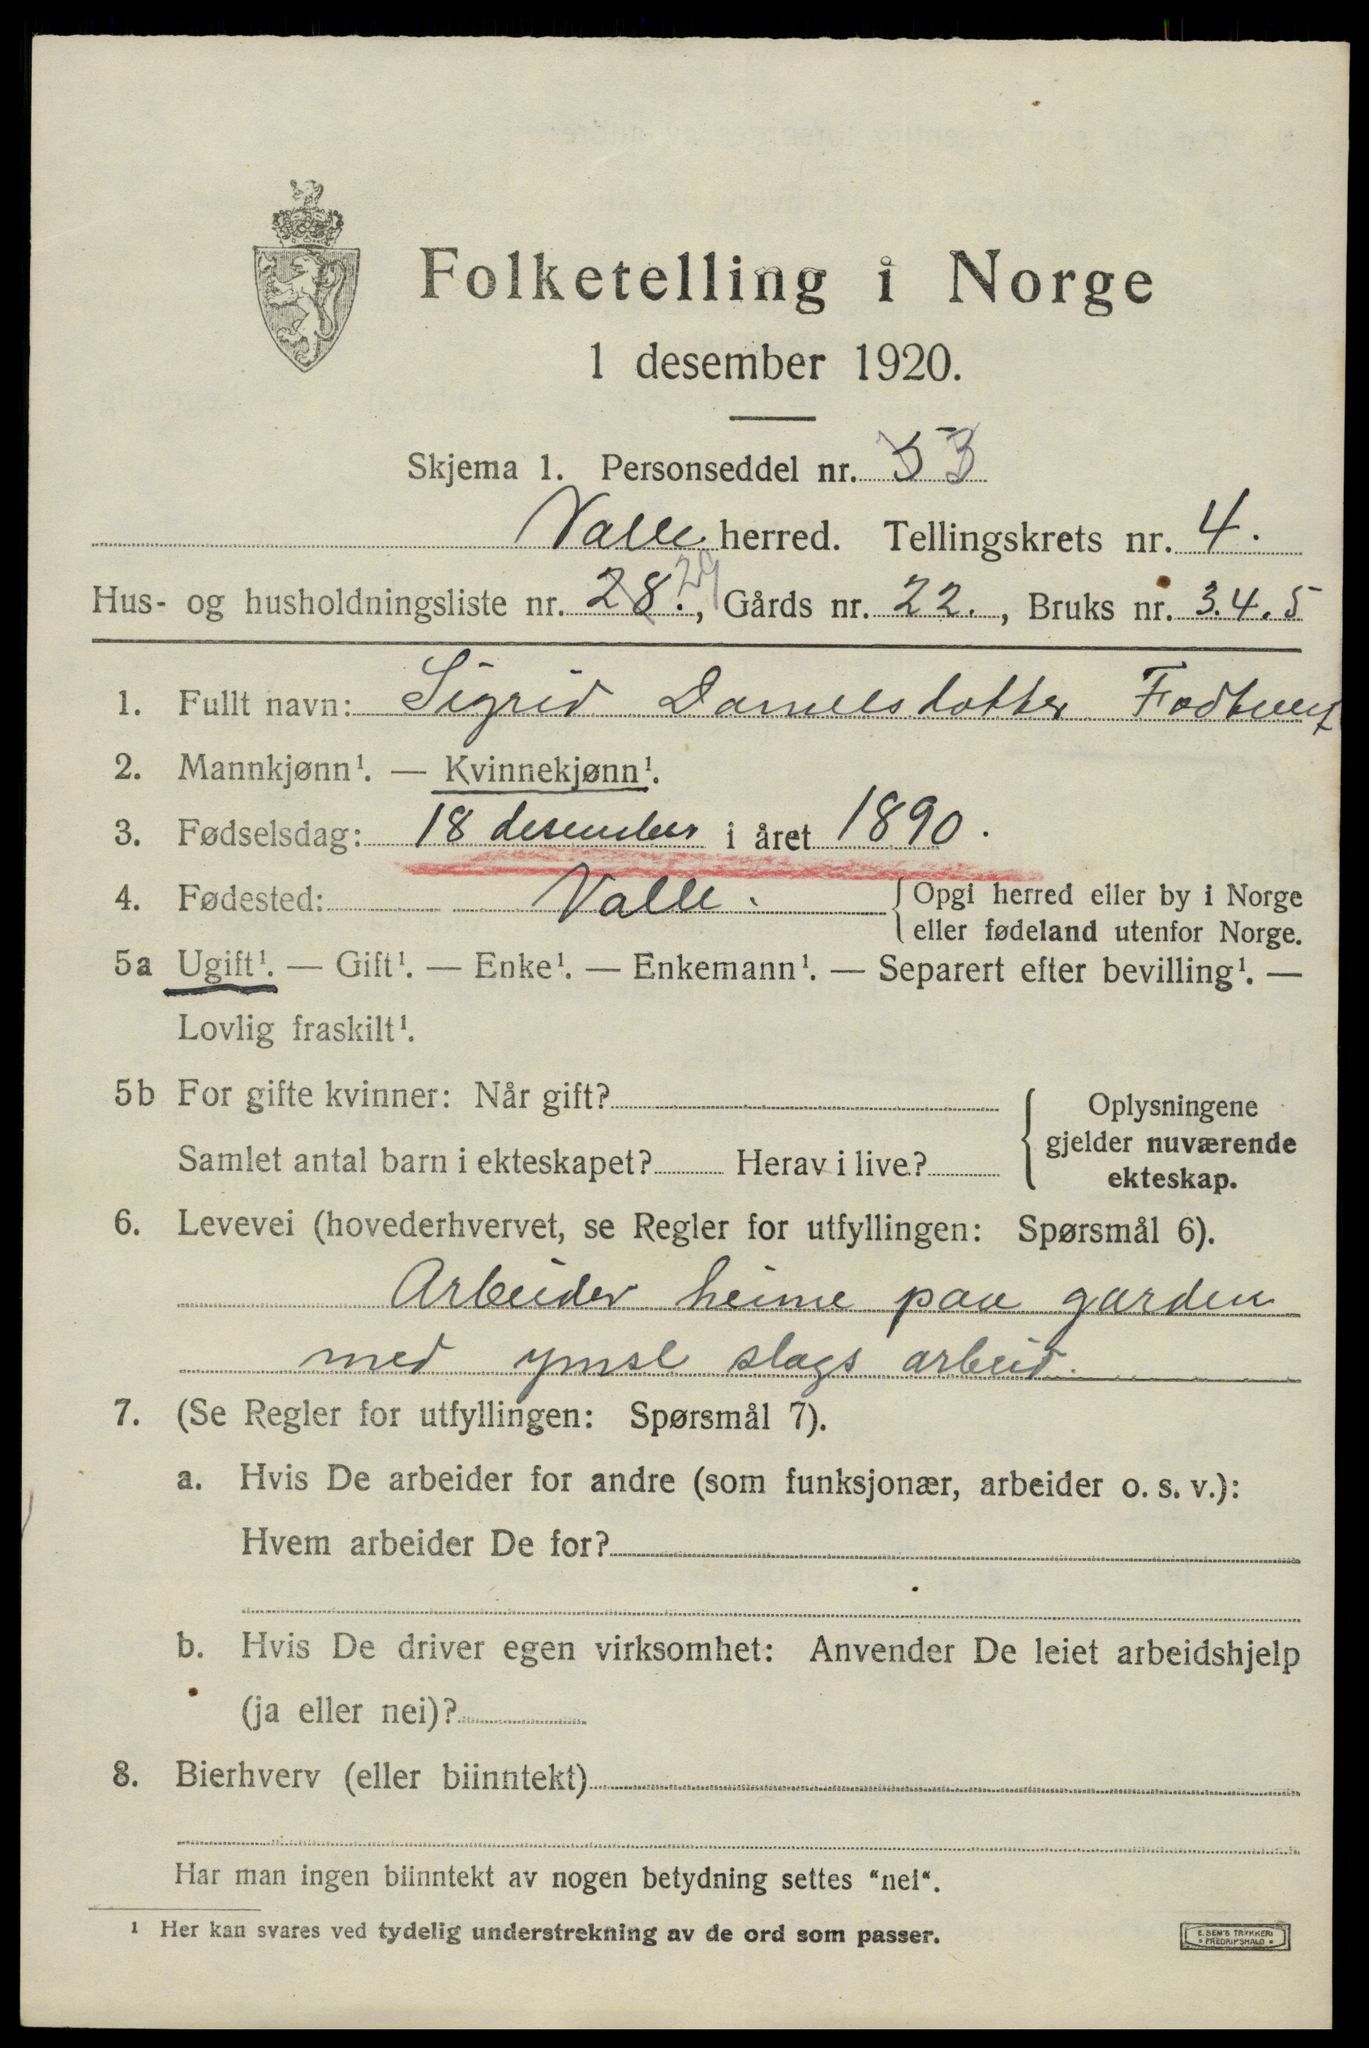 Folketelling i Norge
1 desember 1920.
Skjema 1. Personseddel nr. 53
Valle herred. Tellingskrets nr. 4.
Hus- og husholdningsliste nr. 28. 29, Gårds nr. 22., Bruks nr. 3.4.5
1. Fullt navn: Sigrid Danielsdotter
2. Mannkjønn¹. — Kvinnekjønn¹.
3. Fødselsdag: 18 desember i året 1890.
4. Fødested: Valle. { Opgi herred eller by i Norge
eller fødeland utenfor Norge.
5a Ugift¹. — Gift¹. — Enke¹. — Enkemann¹. — Separert efter bevilling¹. —
Lovlig fraskilt¹.
5b For gifte kvinner: Når gift?
Samlet antal barn i ekteskapet? Herav i live?
{ Oplysningene
gjelder nuværende
ekteskap.
6. Levevei (hovederhvervet, se Regler for utfyllingen: Spørsmål 6).
Arbeider heime paa garden
med ymse slags arbeid.
7. (Se Regler for utfyllingen: Spørsmål 7).
a. Hvis De arbeider for andre (som funksjonær, arbeider o. s. v.):
Hvem arbeider De for?
b. Hvis De driver egen virksomhet: Anvender De leiet arbeidshjelp
(ja eller nei)?
8. Bierhverv (eller biinntekt)
Har man ingen biinntekt av nogen betydning settes "nei".
¹ Her kan svares ved tydelig understrekning av de ord som passer.
E. SEM'S TRYKKERI
FREDRIKSHALD